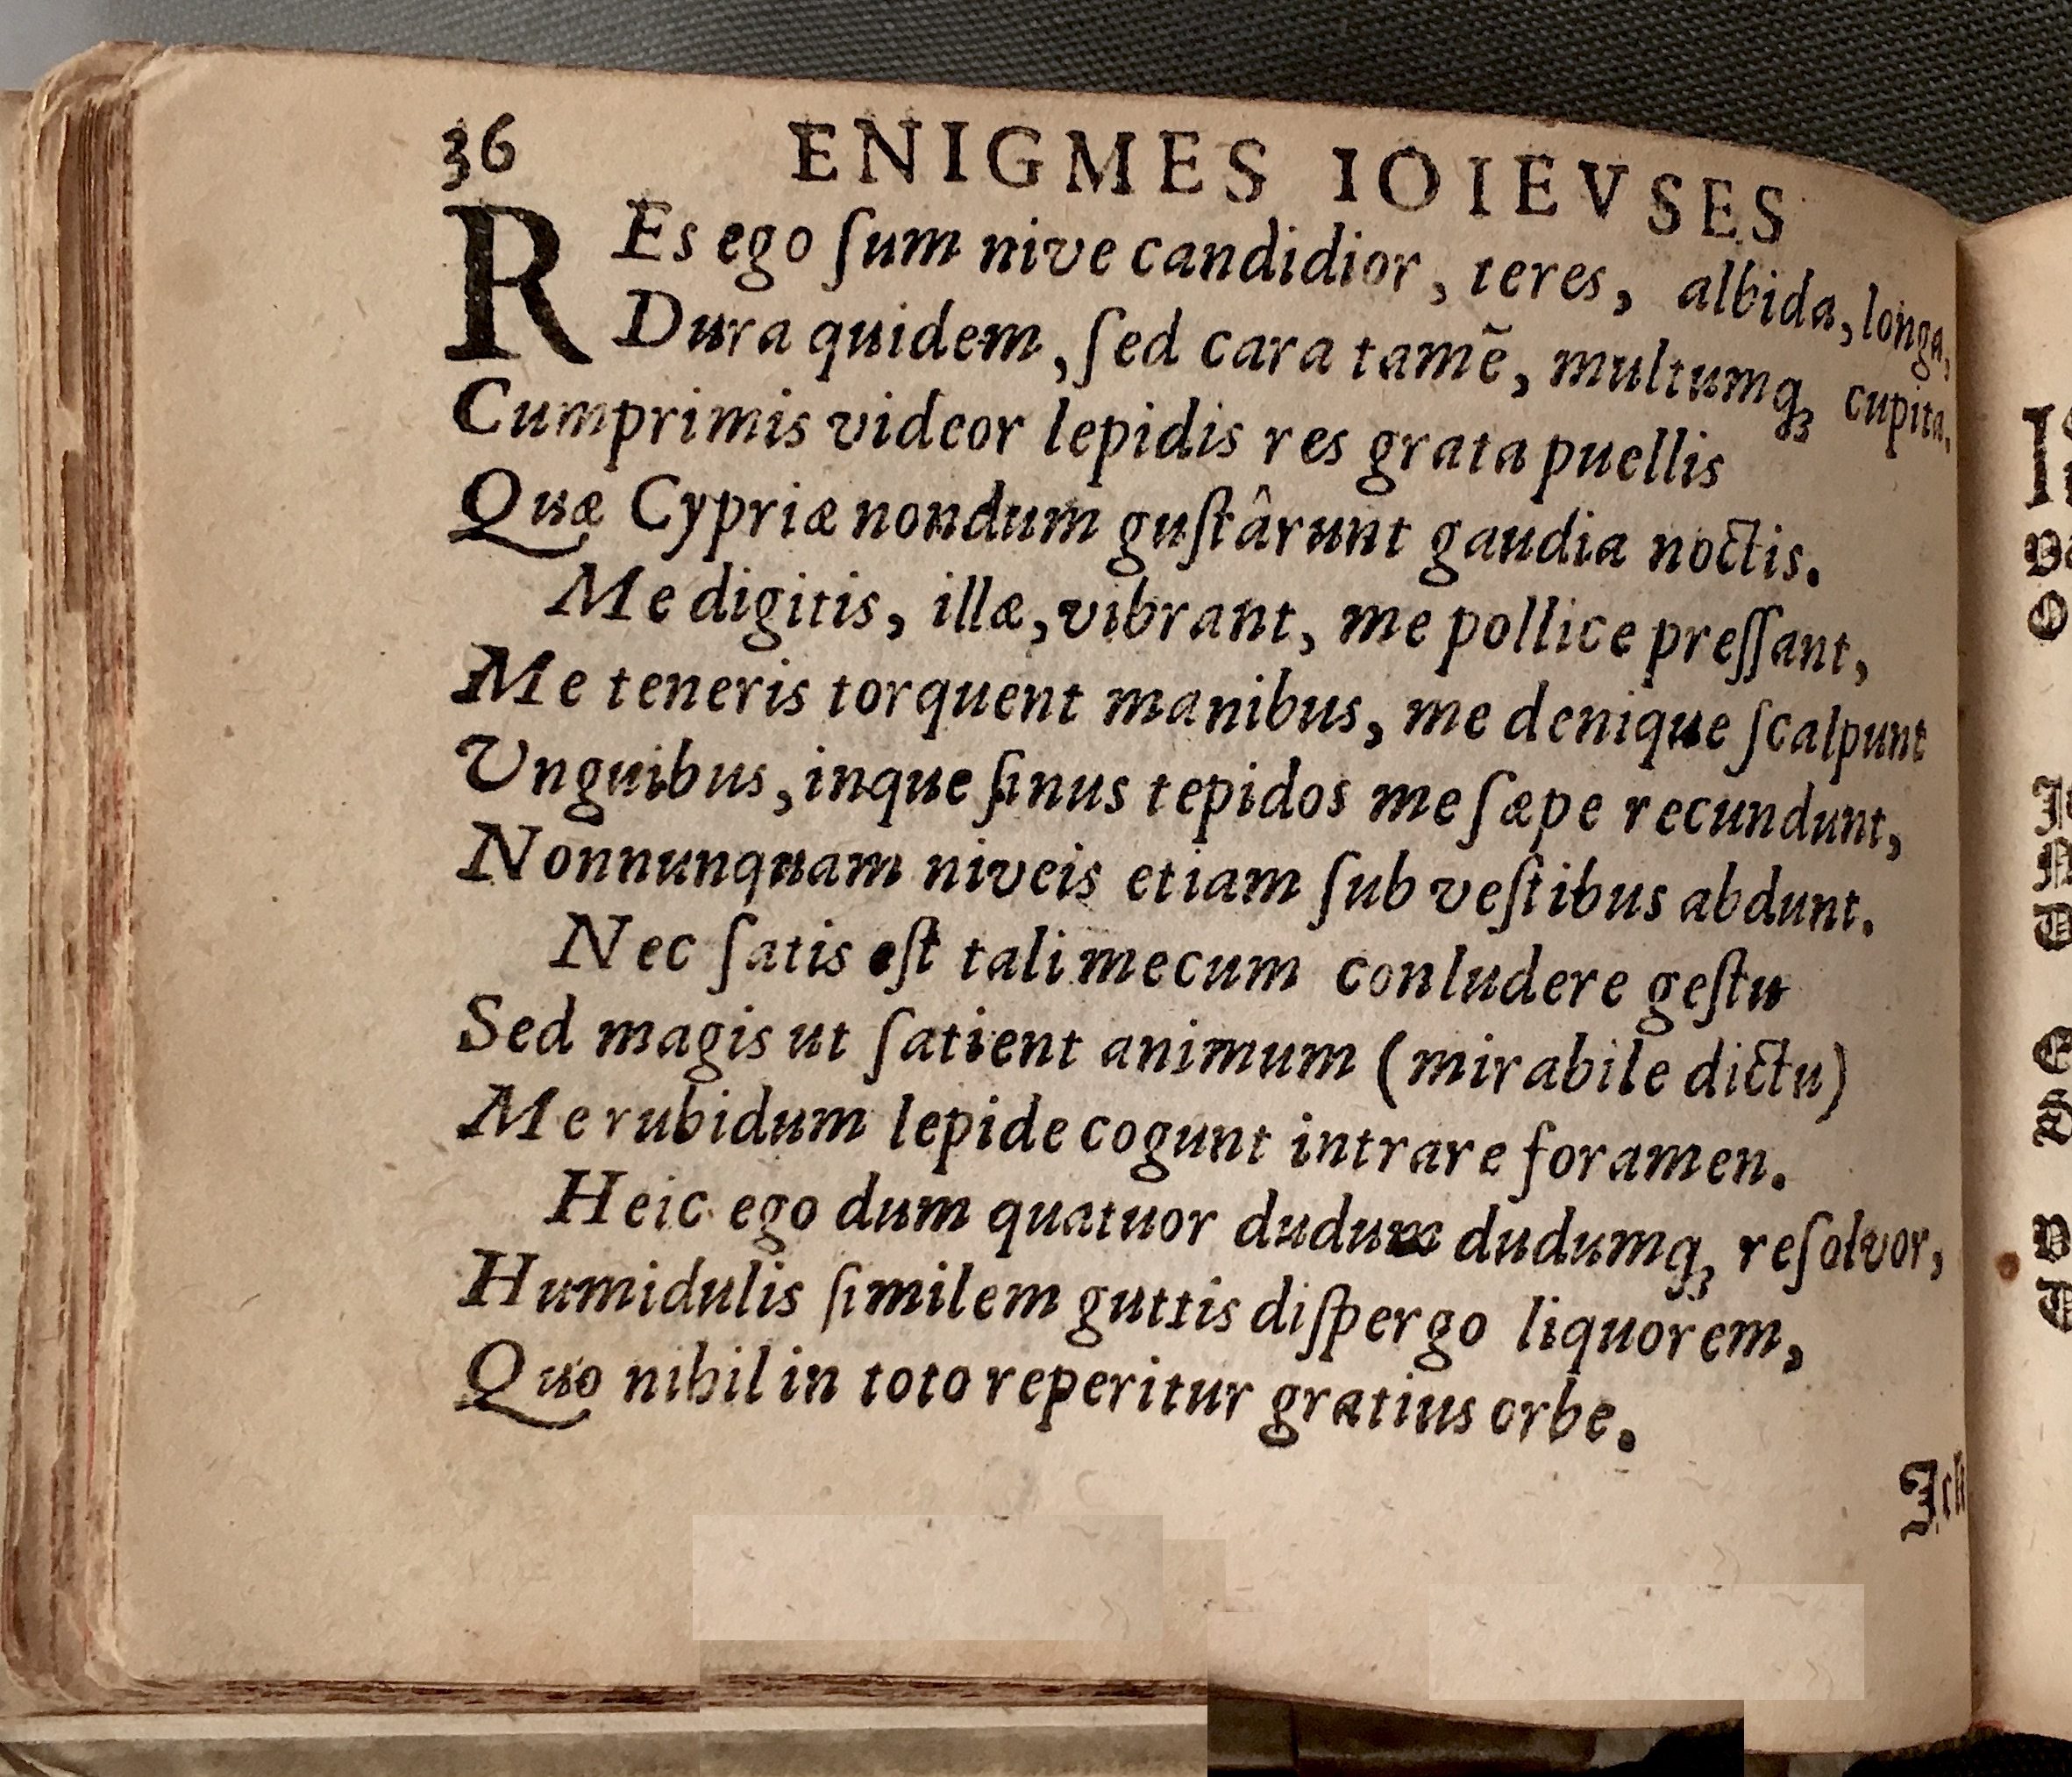 36 ENIGMES IOIEVSES
REs ego ſum nive candidior, teres, albida, longa,
Dura quidem, ſed cara tamẽ, multumqꝫ cupita,
Cumprimis videor lepidis res grata puellis
Quæ Cypriæ nondum guſtârunt gaudia noctis.
Me digitis, illæ, vibrant, me pollice preſſant,
Me teneris torquent manibus, me denique ſcalpunt
Vnguibus, inque ſinus tepidos me ſæpe recundunt,
Nonnunquam niveis etiam ſub veſtibus abdunt.
Nec ſatis eſt tali mecum conludere geſtu
Sed magis ut ſatient animum (mirabile dictu)
Me rubidum lepide cogunt intrare foramen.
Heic ego dum quatuor dudum dudumqꝫ reſolvor,
Humidulis ſimilem guttis diſpergo liquorem,
Quo nihil in toto reperitur gratius orbe.